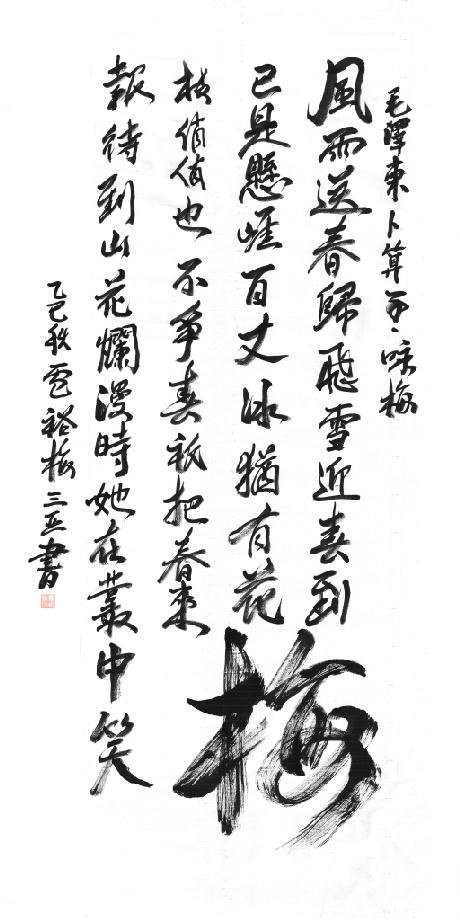 毛澤東卜算子、咏梅
風雨送春歸飛雪迎春到
已是懸崖百丈冰猶有花
枝俏俏也不爭春祇把春來
報待到山花爛漫時她在叢中笑
梅
乙巳秋裕梅三亞書